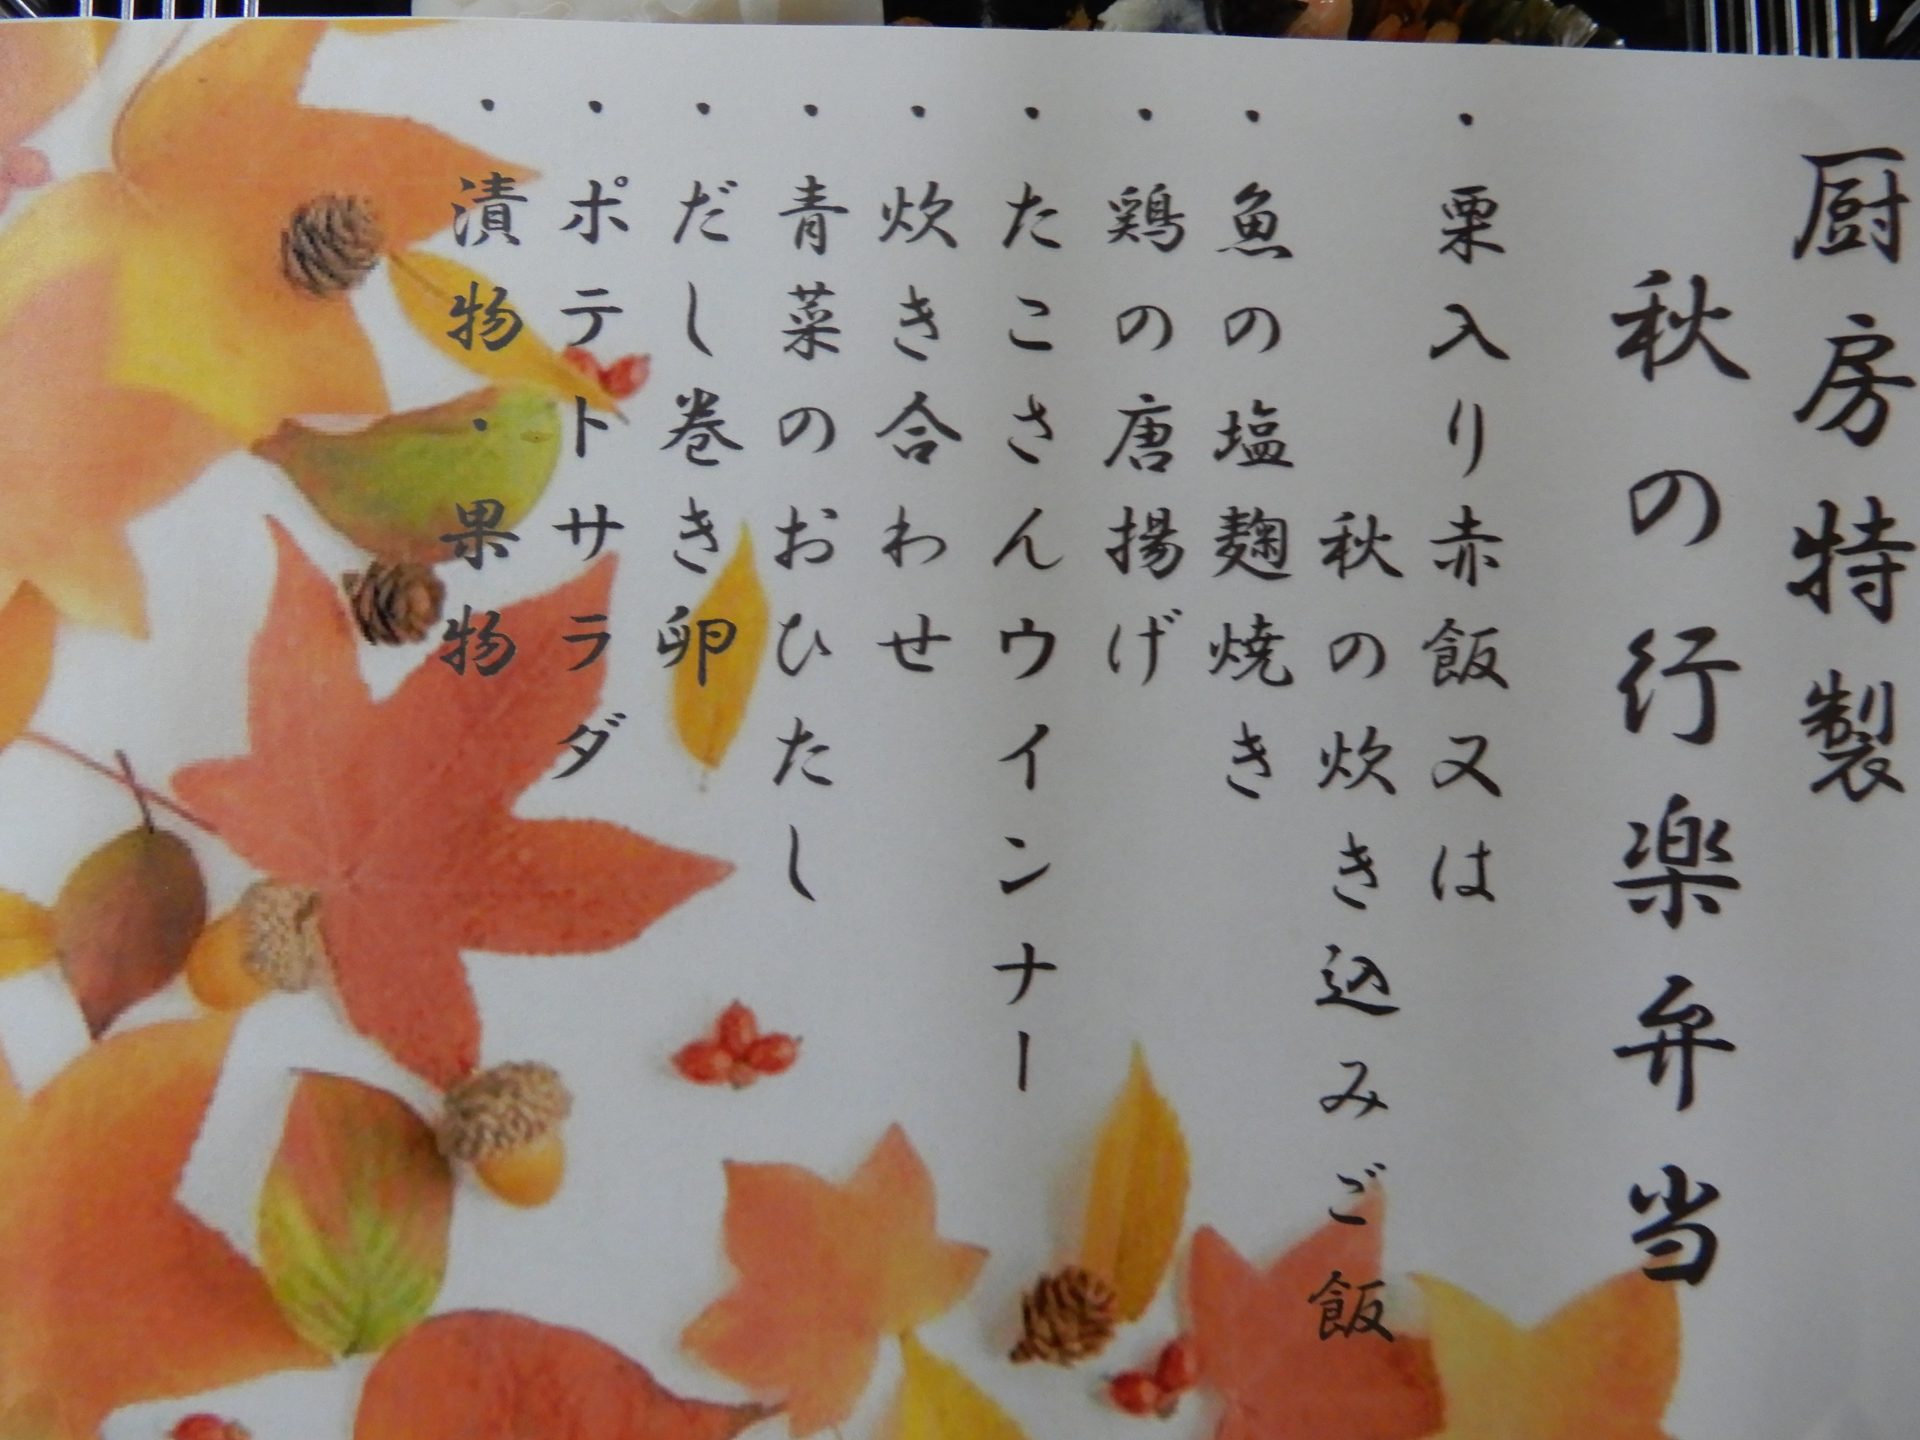 厨房特製
秋の行楽弁当
・栗入り赤飯又は
秋の炊き込みご飯
・魚の塩麹焼き
・鶏の唐揚げ
・たこさんウインナー
・炊き合わせ
・青菜のおひたし
・だし巻き卵
・ポテトサラダ
・漬物・果物